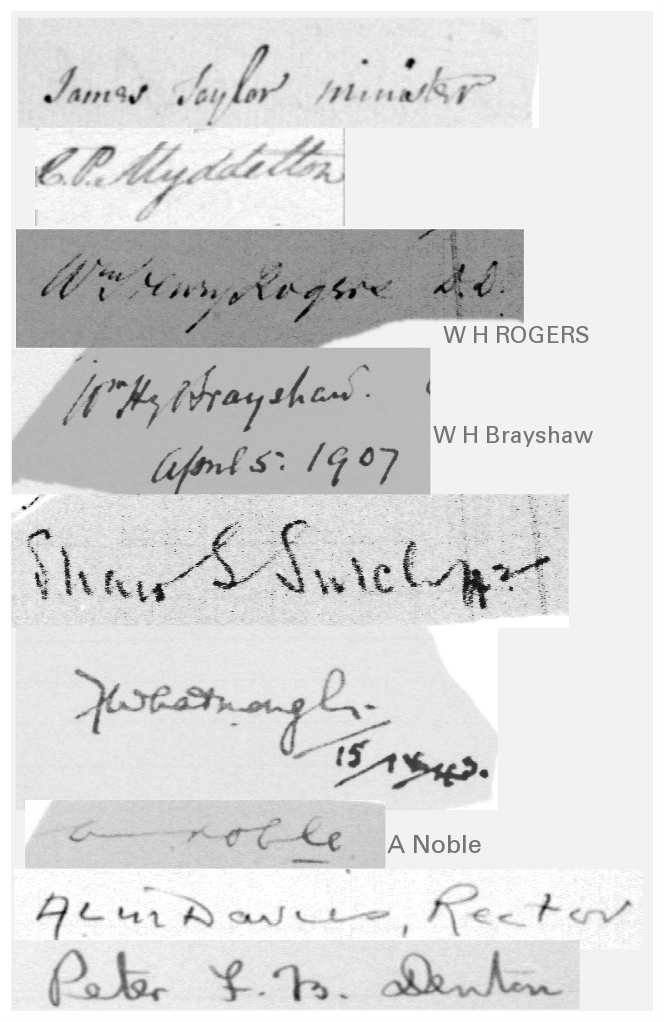 James Taylor minister
C.P. Myddelton
Wm Henry Rogers D.D.
W H ROGERS
Wm Hy Brayshaw.
W H Brayshaw
April 5: 1907
Shaw S Sutcliffe
Whatmough
15/
A Noble
noble
Davies, Rector
Peter F. B. Denton